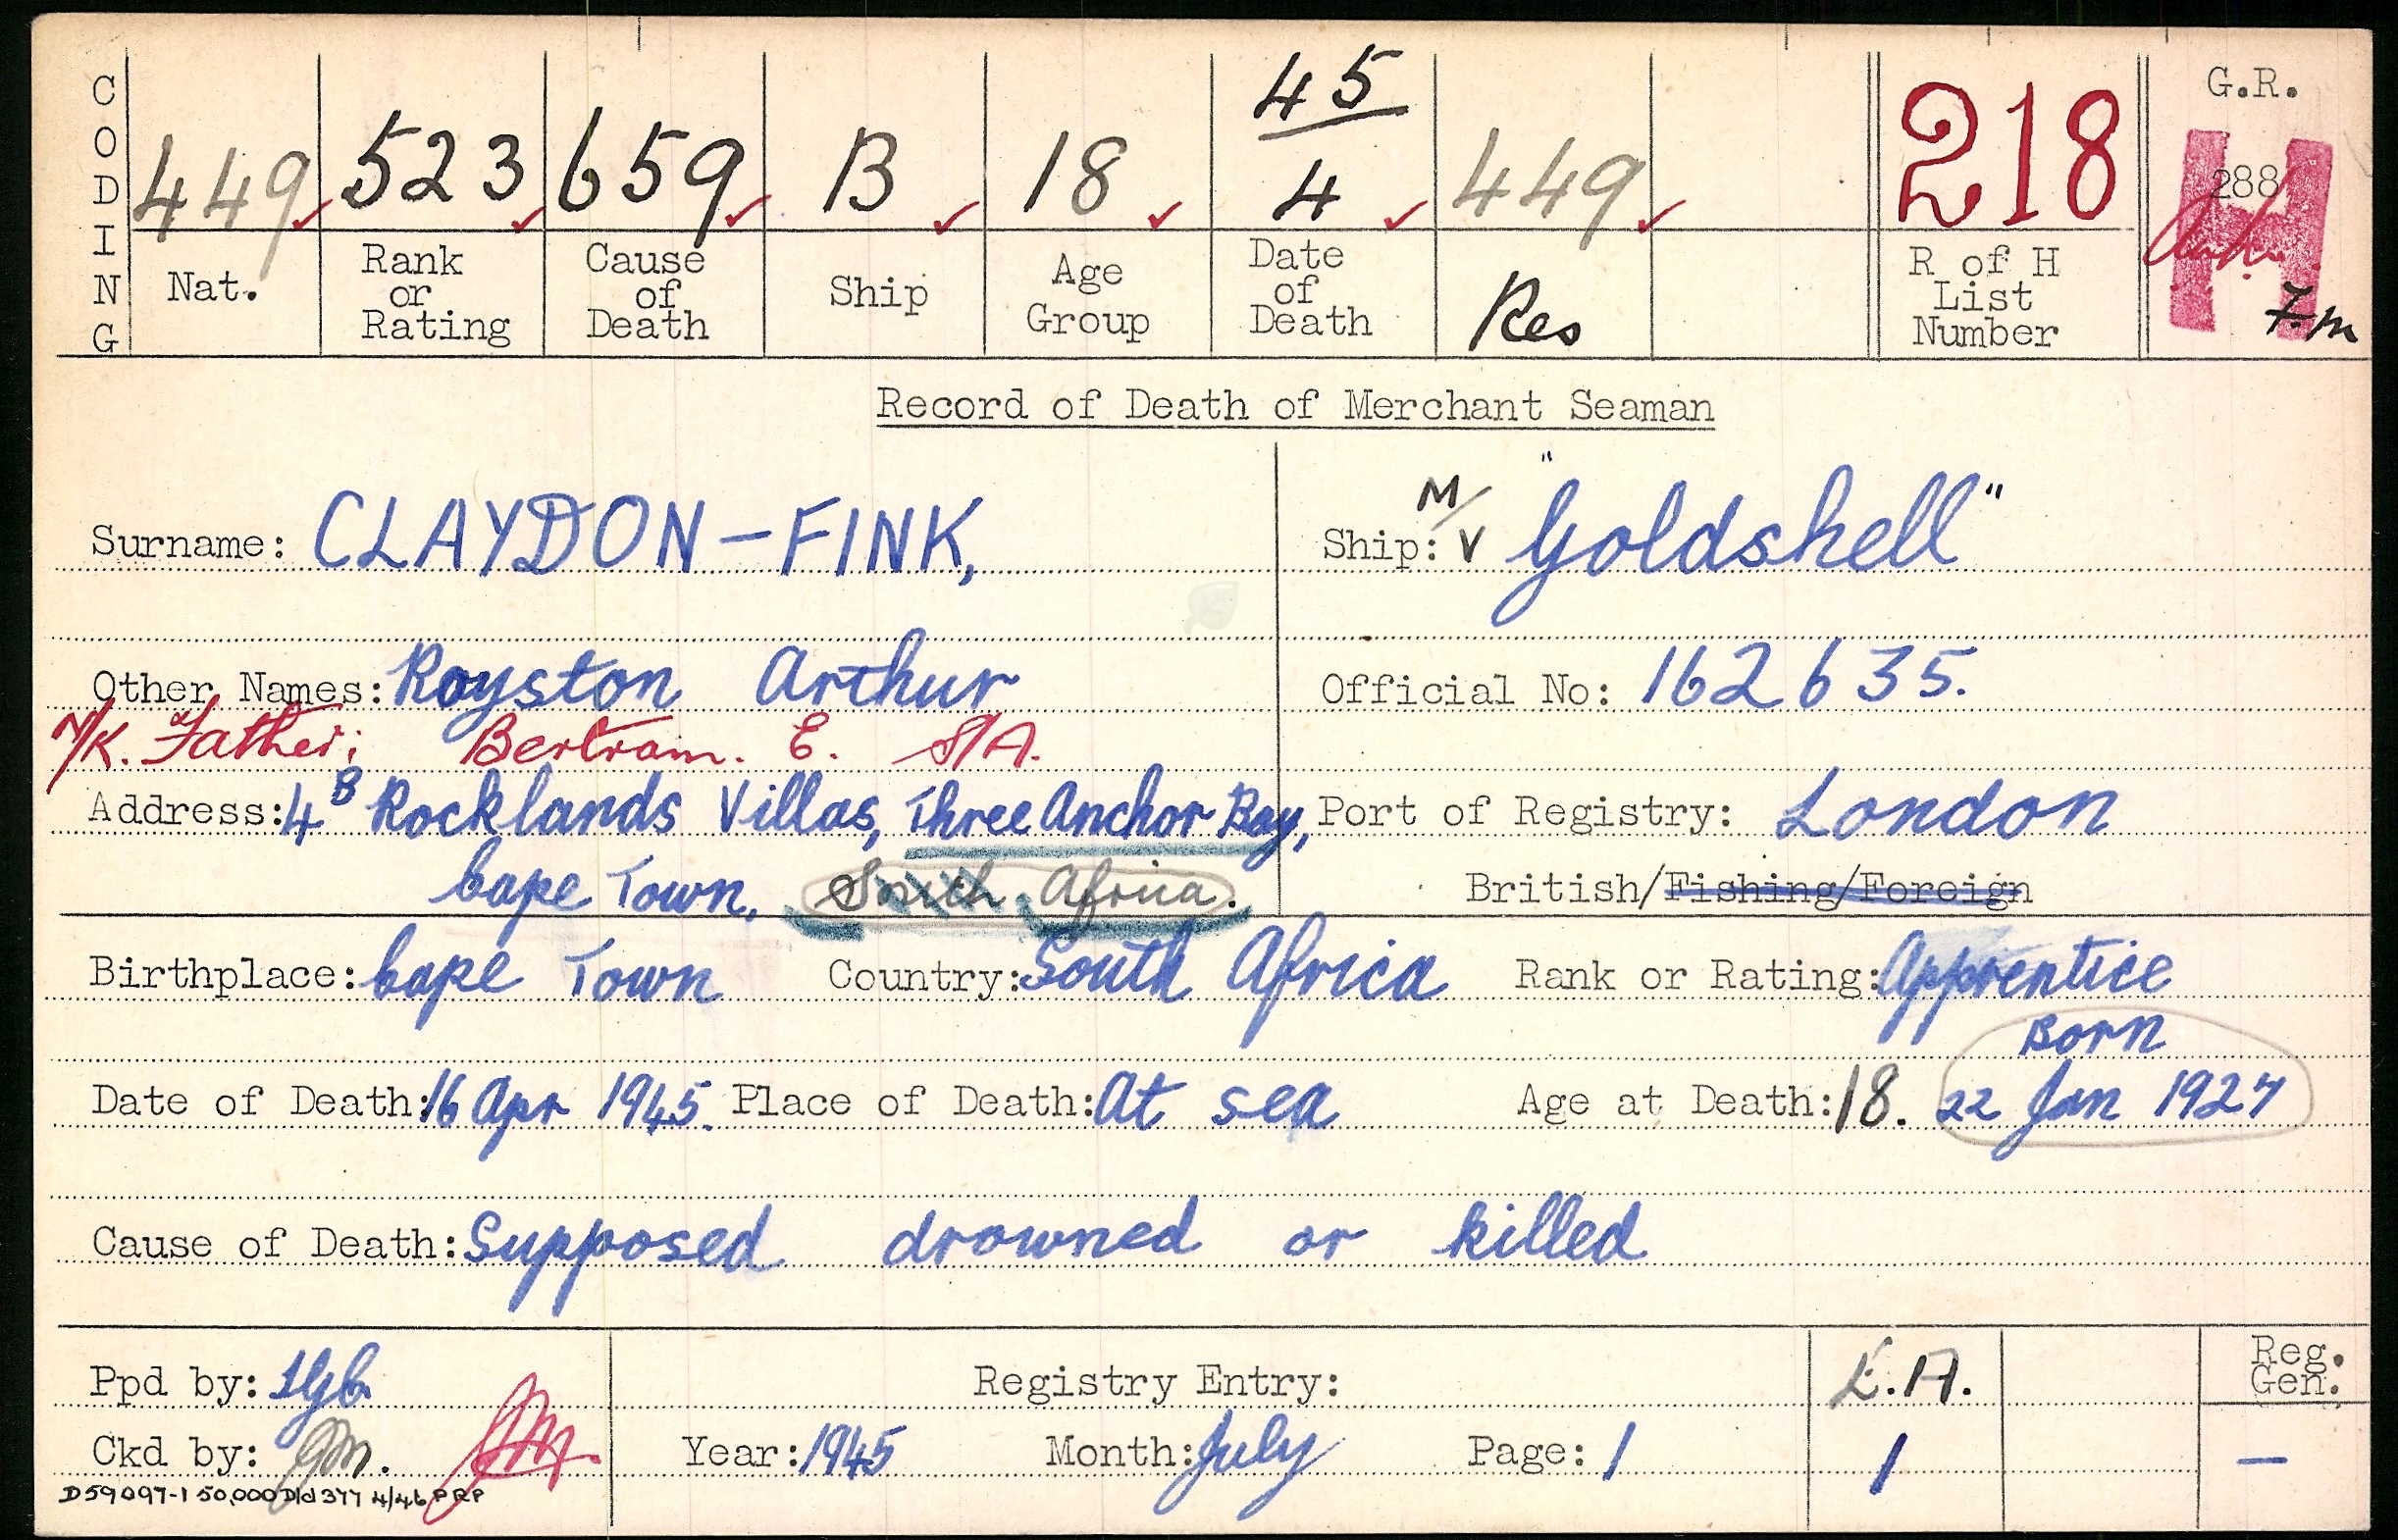 CODING
449 523 659 B 18 45/4 449 218 G.R.
288 H
Nat. Rank or Rating Cause of Death Ship Age Group Date of Death Res R of H List Number 7.m
Record of Death of Merchant Seaman
Surname: CLAYDON-FINK, Ship: M/V "Goldshell"
Other Names: Royston Arthur Official No: 162635.
N/K. Father: Bertram. E. S/A.
Address: 4B Rocklands Villas, Three Anchor Bay, Port of Registry: London
Cape Town, South Africa. British/Fishing/Foreign
Birthplace: Cape Town Country: South Africa Rank or Rating: Apprentice
Born
Date of Death: 16 Apr 1945. Place of Death: At sea Age at Death: 18. 22 Jan 1927
Cause of Death: Supposed drowned or killed
Ppd by: Registry Entry: E.A. Reg. Gen.
Ckd by: JM. JM Year: 1945 Month: July Page: 1 1 —
D59097-1 50,000 D/d 377 4/46 P R P